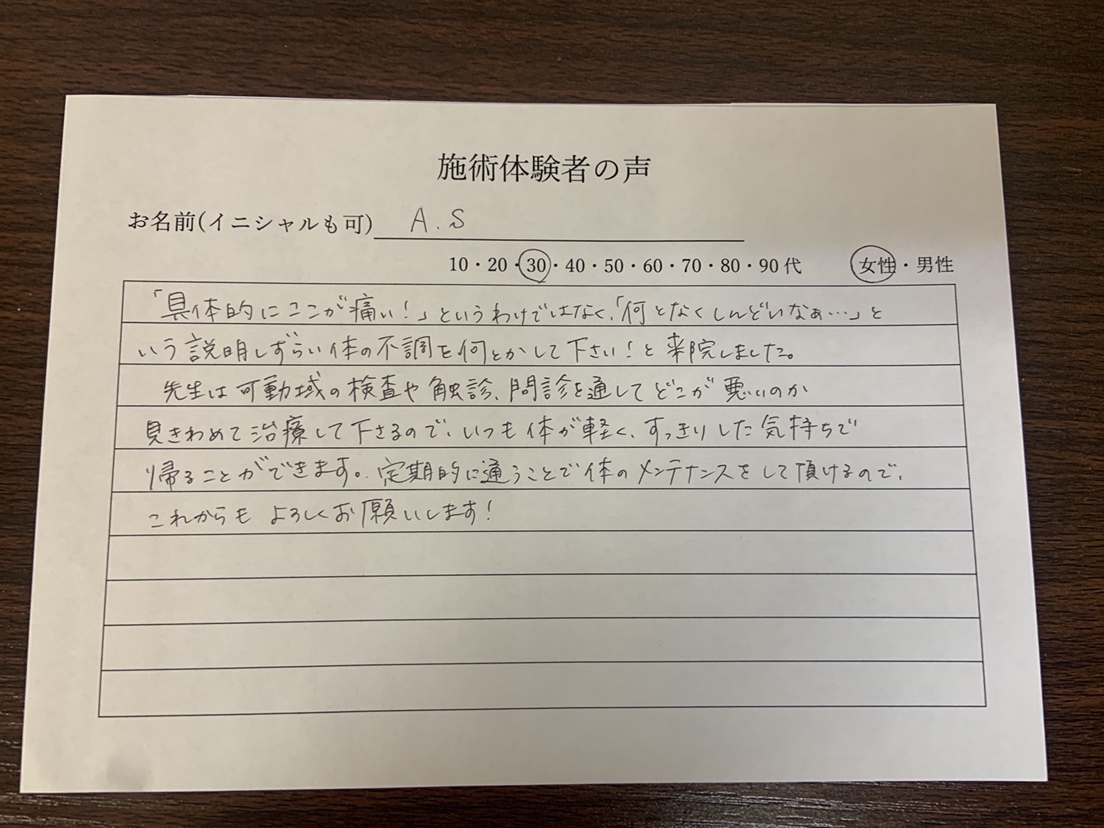 施術体験者の声
お名前(イニシャルも可) A.S
10・20・30・40・50・60・70・80・90代 女性・男性
「具体的にここが痛い!」というわけではなく、「何となくしんどいなぁ…」と
いう説明しずらい体の不調を何とかして下さい!と来院しました。
先生は可動域の検査や触診、問診を通してどこが悪いのか
見きわめて治療して下さるので、いつも体が軽く、すっきりした気持ちで
帰ることができます。定期的に通うことで体のメンテナンスをして頂けるので、
これからもよろしくお願いします!